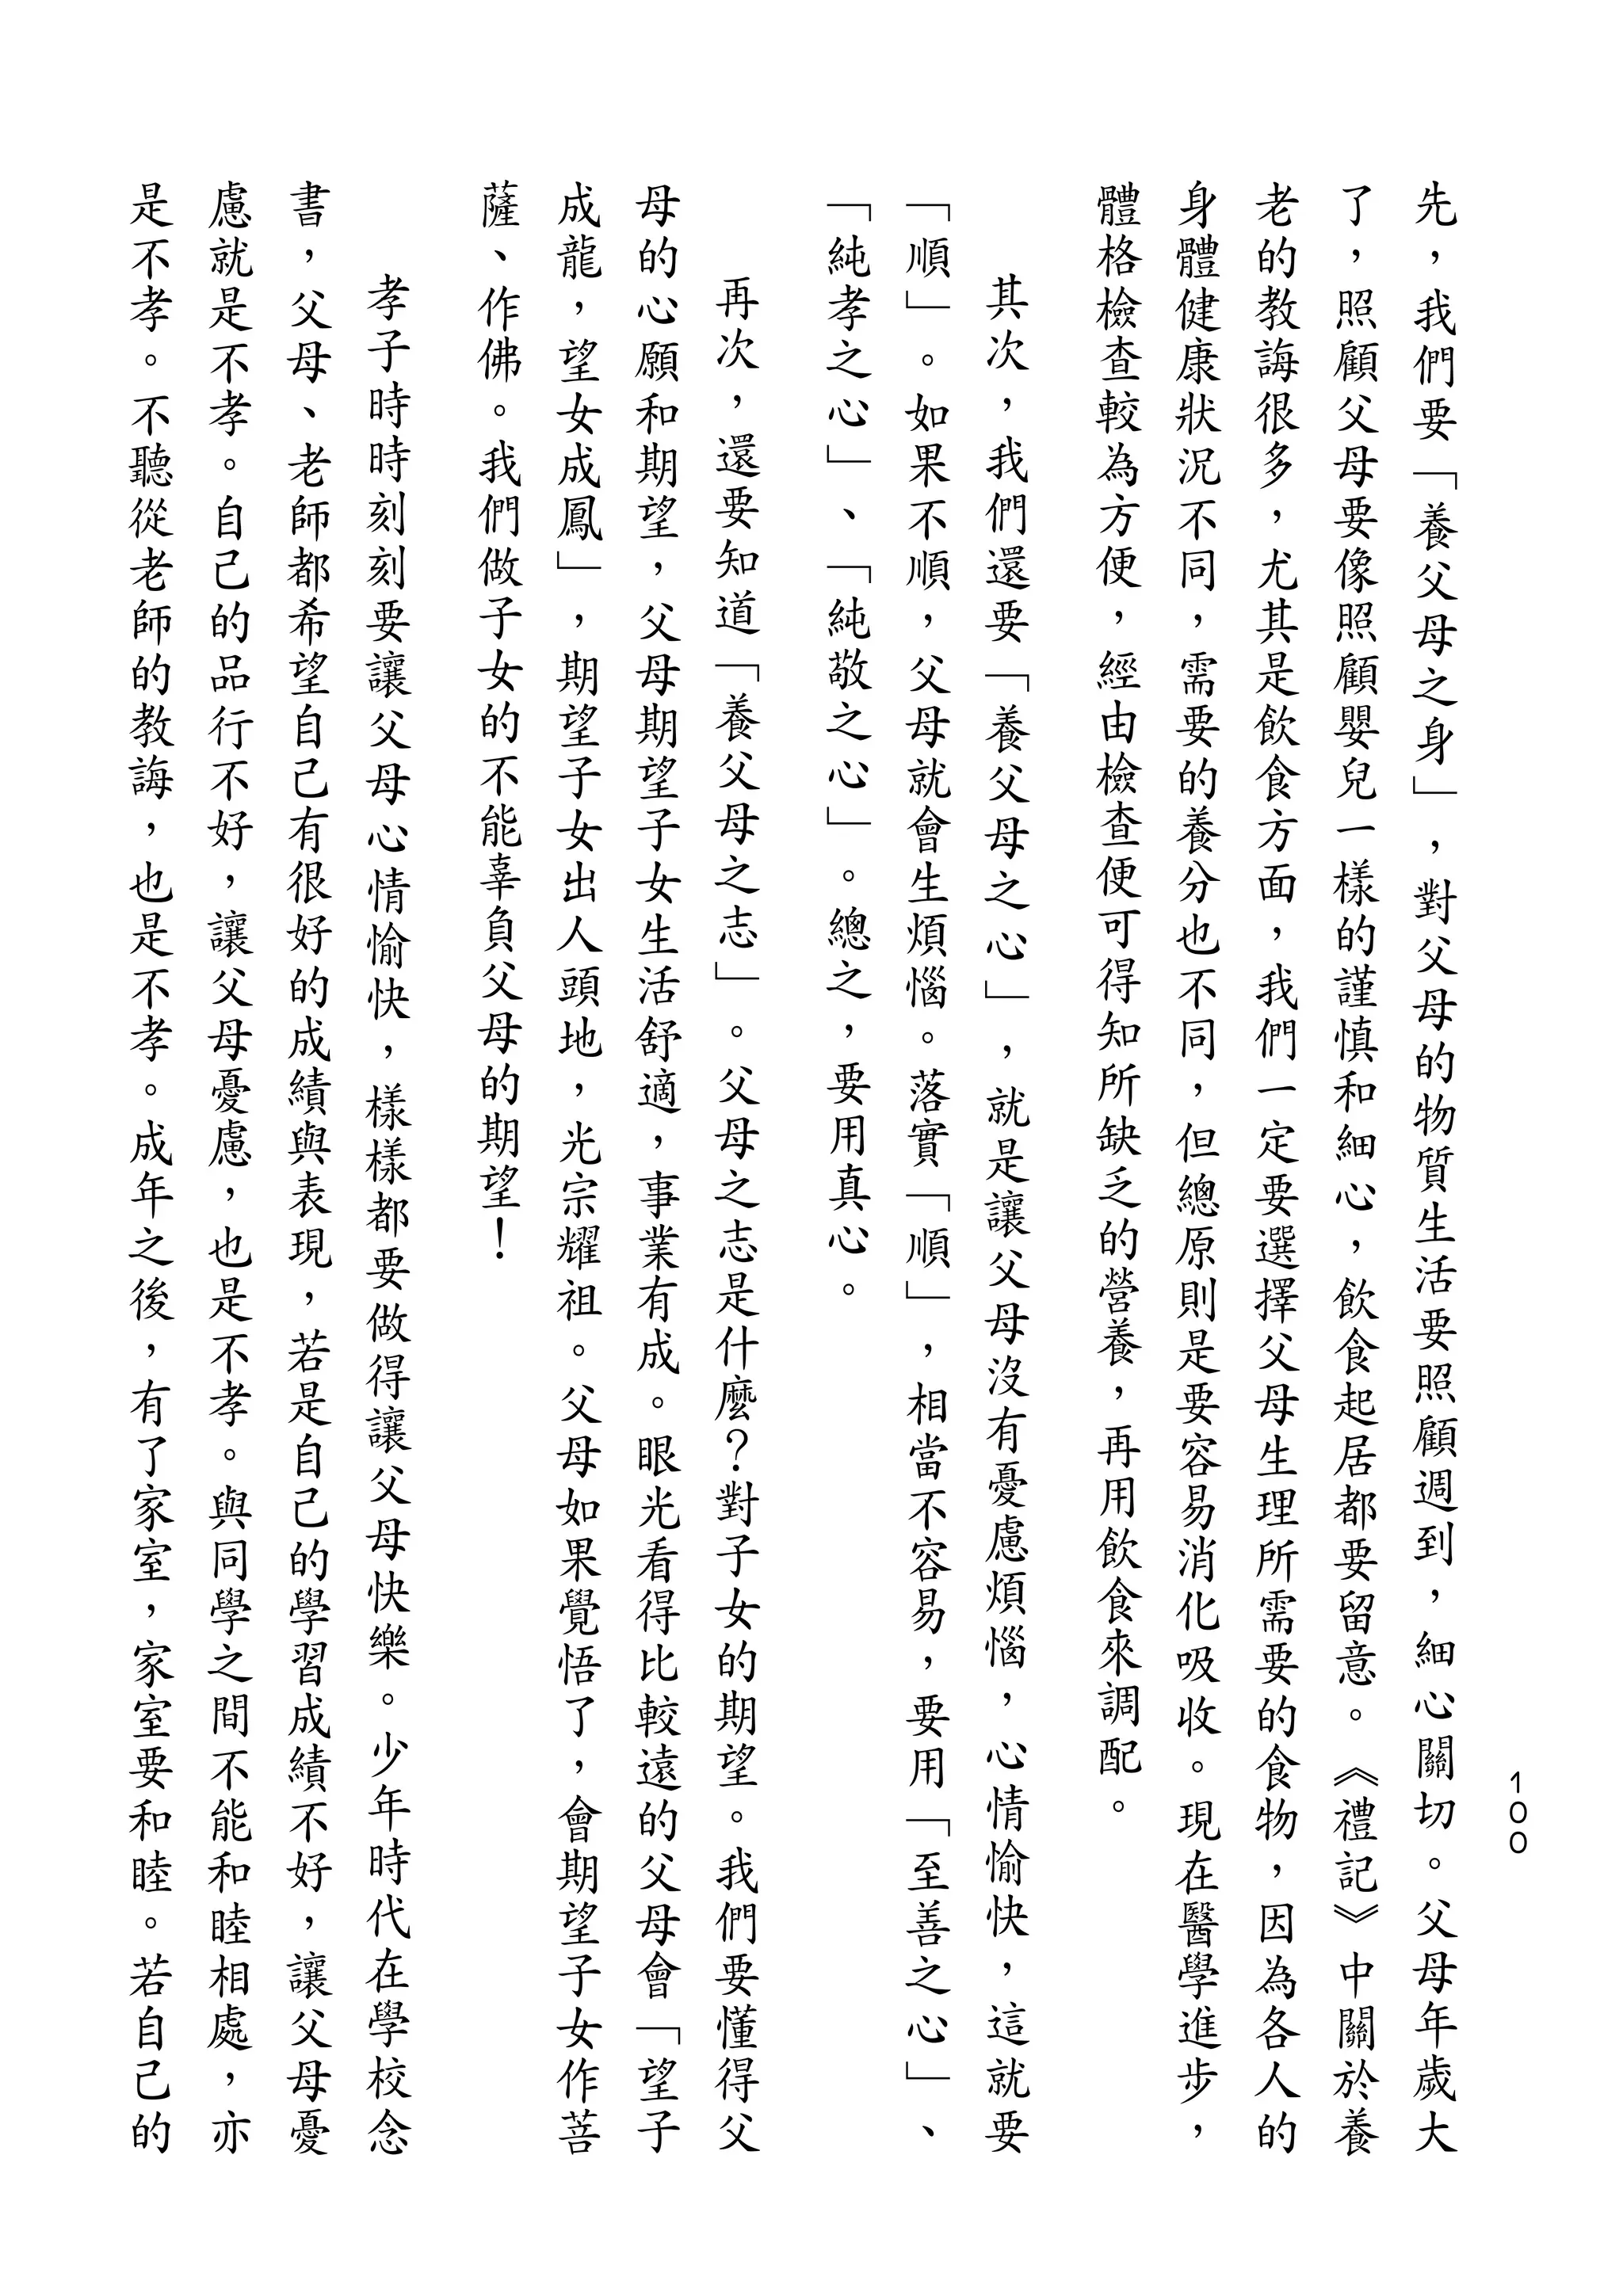 100
先，我們要「養父母之身」，對父母的物質生活要照顧週到，細心關切。父母年歲大
了，照顧父母要像照顧嬰兒一樣的謹慎和細心，飲食起居都要留意。《禮記》中關於養
老的教誨很多，尤其是飲食方面，我們一定要選擇父母生理所需要的食物，因為各人的
身體健康狀況不同，需要的養分也不同，但總原則是要容易消化吸收。現在醫學進步，
體格檢查較為方便，經由檢查便可得知所缺乏的營養，再用飲食來調配。
其次，我們還要「養父母之心」，就是讓父母沒有憂慮煩惱，心情愉快，這就要
「順」。如果不順，父母就會生煩惱。落實「順」，相當不容易，要用「至善之心」、
「純孝之心」、「純敬之心」。總之，要用真心。
再次，還要知道「養父母之志」。父母之志是什麼？對子女的期望。我們要懂得父
母的心願和期望，父母期望子女生活舒適，事業有成。眼光看得比較遠的父母會「望子
成龍，望女成鳳」，期望子女出人頭地，光宗耀祖。父母如果覺悟了，會期望子女作菩
薩、作佛。我們做子女的不能辜負父母的期望！
孝子時時刻刻要讓父母心情愉快，樣樣都要做得讓父母快樂。少年時代在學校念
書，父母、老師都希望自己有很好的成績與表現，若是自己的學習成績不好，讓父母憂
慮就是不孝。自己的品行不好，讓父母憂慮，也是不孝。與同學之間不能和睦相處，亦
是不孝。不聽從老師的教誨，也是不孝。成年之後，有了家室，家室要和睦。若自己的